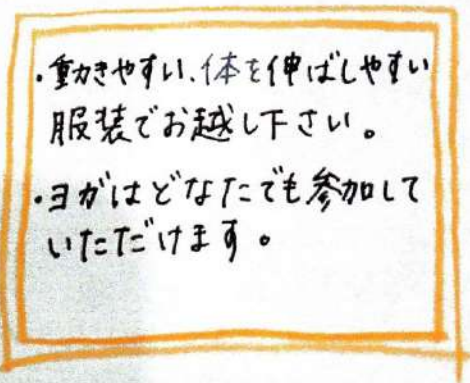 ・動きやすい、体を伸ばしやすい
服装でお越し下さい。
・ヨガはどなたでも参加して
いただけます。